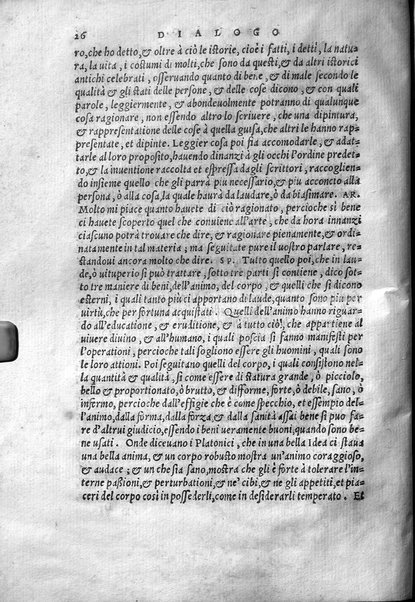 26 DIALOGO
ro, che ho detto, & oltre à ciò le istorie, cioè i fatti, i detti, la natu-
ra, la uita, i costumi di molti, che sono da questi, & da altri istorici
antichi celebrati, osseruando quanto di bene, & di male secondo le
qualità & gli stati delle persone, & delle cose dicono, & con quali
parole, leggiermente, & abondeuolmente potranno di qualunque
cosa ragionare, non essendo altro lo scriuere, che una dipintura,
& rappresentatione delle cose à quella guisa, che altri le hanno rap-
presentate, et dipinte. Leggier cosa poi fia accomodarle, & adat-
tarle al loro proposito, hauendo dinanzi à gli occhi l'ordine predet-
to, & la inuentione raccolta et espressa dagli scrittori, raccoglien-
do insieme quello che gli parrà piu necessario, et piu acconcio alla
persona, ò alla cosa, la quale haurà da laudare, ò da biasimare. AR.
Molto mi piace quanto hauete di ciò ragionato, percioche si bene
ci hauete scoperto quel che conviene all'arte, che da hora innanzi
ciascuno potrà trouare che dire, & ragionare pienamente, & ordi-
natamente in tal materia; ma seguitate pure il uostro parlare, re-
standoui ancora molto che dire. SP. Tutto quello poi, che in lau-
de, ò uituperio si può trattare, sotto tre parti si contiene, dico sot-
to tre maniere di beni, dell'animo, del corpo, & quelli che si dicono
esterni, i quali tanto piu ci apportano di laude, quanto sono piu per
uirtù, che per fortuna acquistati. Quelli dell'animo hanno riguar-
do all'educatione, & eruditione, & à tutto ciò!, che appartiene al
uiuere diuino, & all'humano, i quali poscia si fanno manifesti per
l'operationi, percioche tali sogliono essere gli huomini, quali sono
le loro attioni. Poi seguitano quelli del corpo, i quali consistono nel-
la quantità & qualità, sì come essere di statura grande, ò picciolo,
bello & proportionato, ò brutto, & difforme, forte, ò debile, sano, ò
infermo, percioche dall'effigie che è come specchio, et essempio del-
l'animo, dalla forma, dalla forza & dalla sanità assai bene si può fa-
re d'altrui giudicio, essendo i beni ueramente buoni, quando sono be-
ne usati. Onde diceuano i Platonici, che in una bella Idea ci staua
una bella anima, & un corpo robusto mostra un'animo coraggioso,
& audace; & un che sia sano, mostra che gli è forte à tolerare l'in-
terne passioni, & perturbationi, & ne' cibi, & ne gli appetiti, et pia-
ceri del corpo così in possederli, come in desiderarli temperato. Et